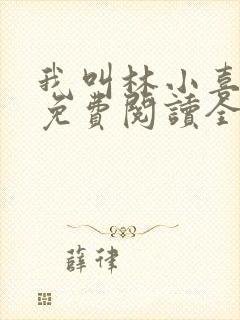 我叫林小喜
免費閱讀全
薛律